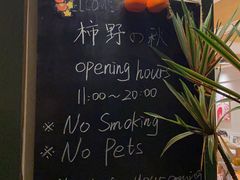 柿野の秋
opening hours
11:00~20:00
※ No Smoking
※ No Pets